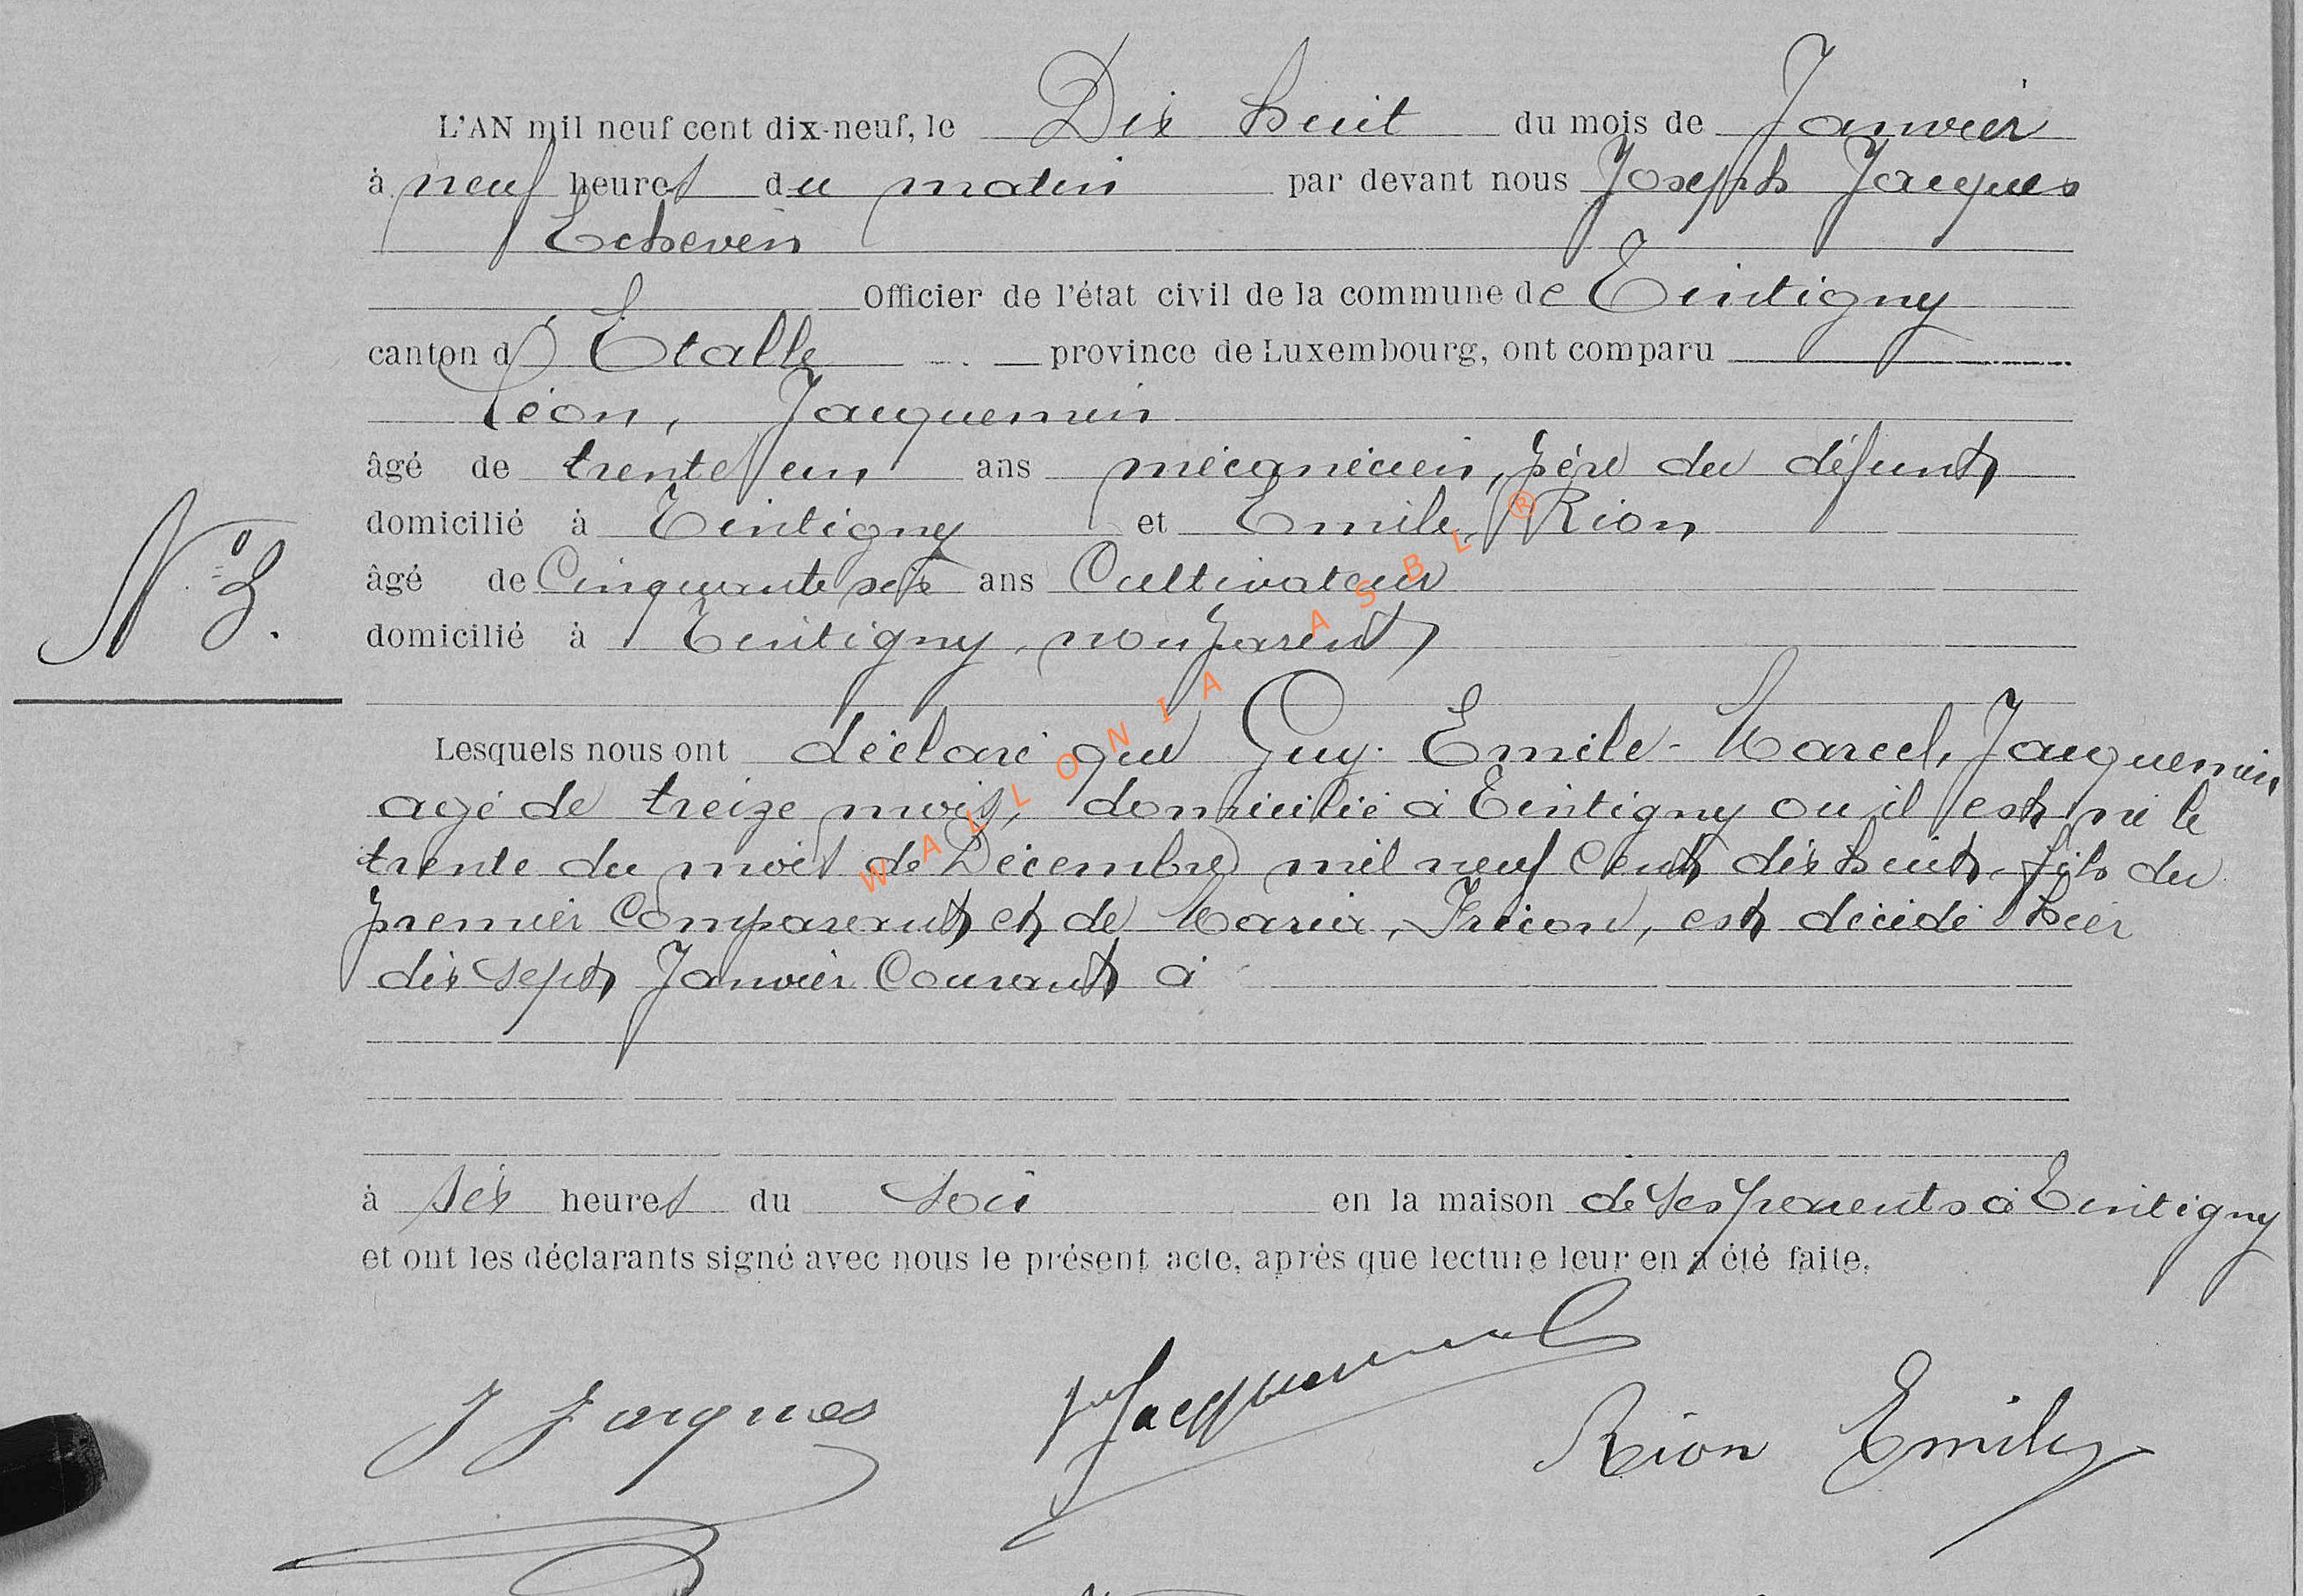 L'AN mil neuf cent dix-neuf, le Dix huit du mois de Janvier
à neuf heures du matin par devant nous Joseph Jacques
Echevin
Officier de l'état civil de la commune de Tintigny
canton d'Etalle province de Luxembourg, ont comparu
Léon, Jacquemin
âgé de trente un ans mécanicien, père du défunt
domicilié à Tintigny et Emile Rion
âgé de Cinquante six ans Cultivateur
N° 3. domicilié à Tintigny, non parent
Lesquels nous ont déclaré que Guy-Emile-Marcel, Jacquemin
agé de treize mois, domicilié à Tintigny ou il est né le
trente du mois de Décembre mil neuf Cent dix huit, fils du
premier Comparant et de Maria, est décédé hier
dix sept Janvier Courant à
à six heures du soir en la maison de ses parents à Tintigny
et ont les déclarants signé avec nous le présent acte, après que lecture leur en a été faite.
J Jacques Jacquemin Rion Emile
WALLONIA ASBL ®